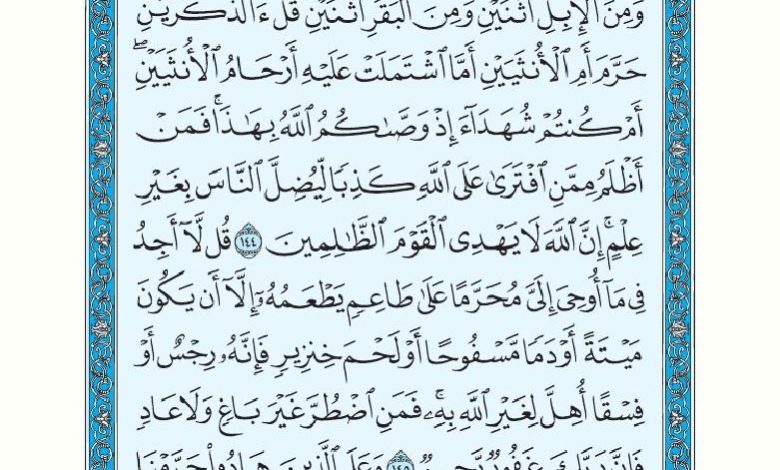 وَمِنَ ٱلْإِبِلِ ٱثْنَيْنِ وَمِنَ ٱلْبَقَرِ ٱثْنَيْنِ قُلْ ءَآلذَّكَرَيْنِ
حَرَّمَ أَمِ ٱلْأُنثَيَيْنِ أَمَّا ٱشْتَمَلَتْ عَلَيْهِ أَرْحَامُ ٱلْأُنثَيَيْنِۖ
أَمْ كُنتُمْ شُهَدَآءَ إِذْ وَصَّىٰكُمُ ٱللَّهُ بِهَـٰذَاۚ فَمَنْ
أَظْلَمُ مِمَّنِ ٱفْتَرَىٰ عَلَى ٱللَّهِ كَذِبًا لِّيُضِلَّ ٱلنَّاسَ بِغَيْرِ
عِلْمٍۚ إِنَّ ٱللَّهَ لَا يَهْدِى ٱلْقَوْمَ ٱلظَّـٰلِمِينَ ١٤٤ قُل لَّآ أَجِدُ
فِى مَآ أُوحِىَ إِلَىَّ مُحَرَّمًا عَلَىٰ طَاعِمٍ يَطْعَمُهُۥٓ إِلَّآ أَن يَكُونَ
مَيْتَةً أَوْ دَمًا مَّسْفُوحًا أَوْ لَحْمَ خِنزِيرٍ فَإِنَّهُۥ رِجْسٌ أَوْ
فِسْقًا أُهِلَّ لِغَيْرِ ٱللَّهِ بِهِۦۚ فَمَنِ ٱضْطُرَّ غَيْرَ بَاغٍ وَلَا عَادٍ
فَإِنَّ رَبَّكَ غَفُورٌ رَّحِيمٌ ١٤٥ وَعَلَى ٱلَّذِينَ هَادُوا۟ حَرَّمْنَا